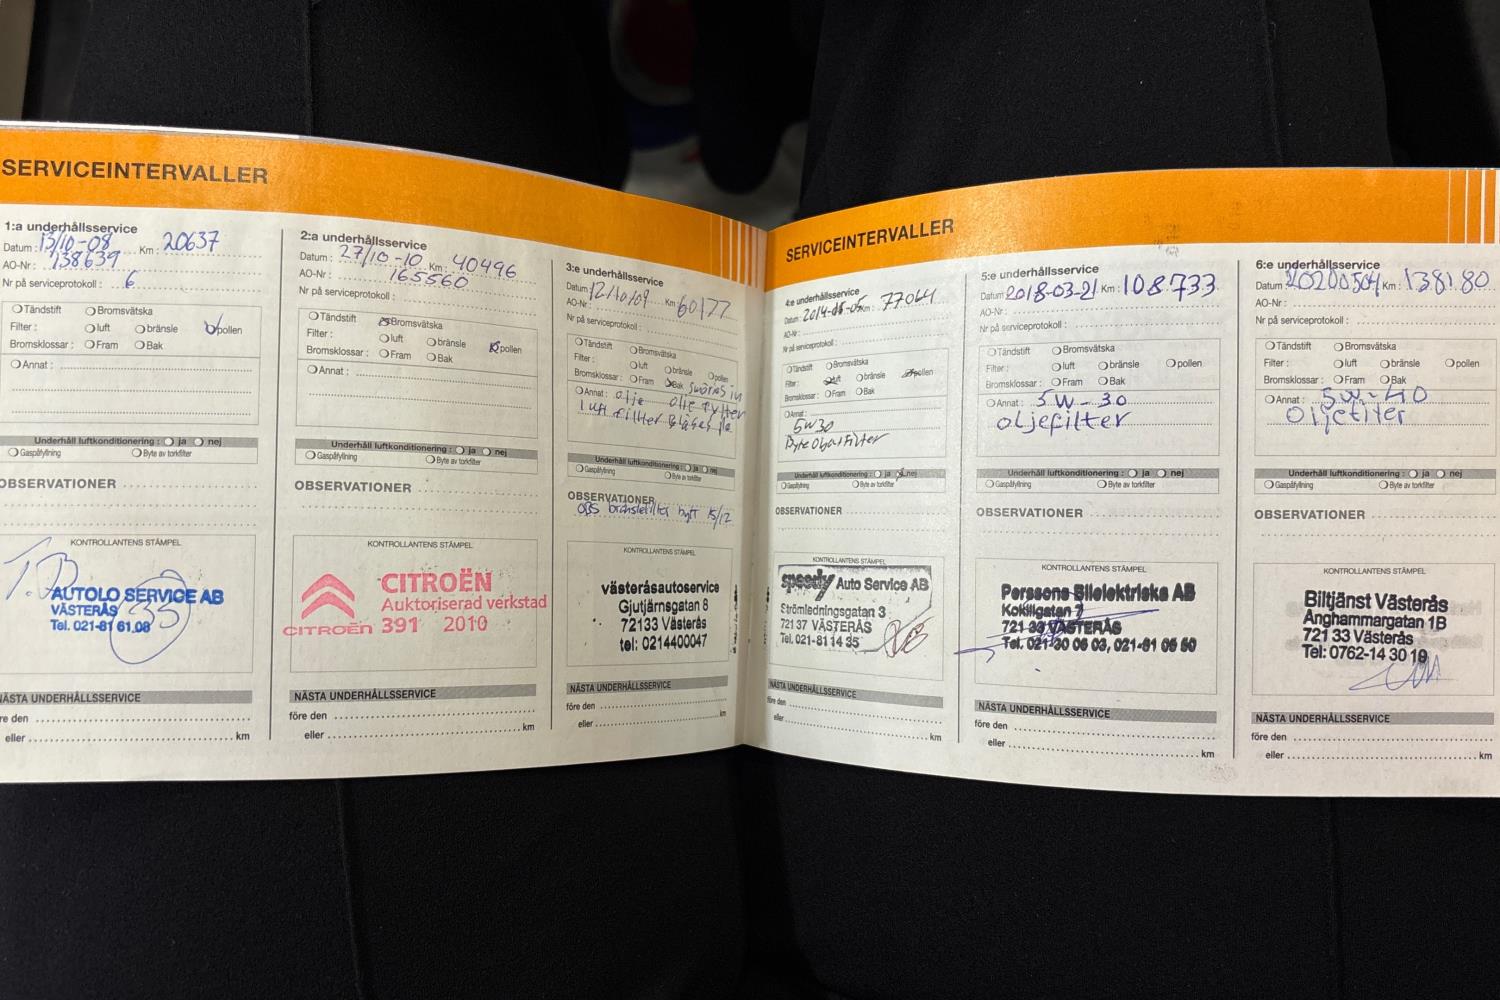 SERVICEINTERVALLER
1:a underhållsservice
Datum : 13/10-08 Km : 20637
AO-Nr : 138639
Nr på serviceprotokoll : 6
Tändstift Bromsvätska
Filter : luft bränsle pollen
Bromsklossar : Fram Bak
Annat :
Underhåll luftkonditionering : ja nej
Gaspåfyllning Byte av torkfilter
OBSERVATIONER
KONTROLLANTENS STÄMPEL
AUTOLO SERVICE AB
VÄSTERÅS 35
Tel. 021-81 61.08
NÄSTA UNDERHÅLLSSERVICE
re den
eller km
2:a underhållsservice
Datum : 27/10-10 Km : 40496
AO-Nr : 165560
Nr på serviceprotokoll :
Tändstift Bromsvätska
Filter : luft bränsle pollen
Bromsklossar : Fram Bak
Annat :
Underhåll luftkonditionering : ja nej
Gaspåfyllning Byte av torkfilter
OBSERVATIONER
KONTROLLANTENS STÄMPEL
CITROËN
Auktoriserad verkstad
CITROËN 391 2010
NÄSTA UNDERHÅLLSSERVICE
före den
eller km
3:e underhållsservice
Datum : 12/10/09 Km : 60177
AO-Nr :
Nr på serviceprotokoll :
Tändstift Bromsvätska
Filter : luft bränsle pollen
Bromsklossar : Fram Bak smörjs in
Annat : olje olje fylter
luft fillter
Underhåll luftkonditionering : ja nej
Gaspåfyllning Byte av torkfilter
OBSERVATIONER
OBS bränslefilter bytt 15/12
KONTROLLANTENS STÄMPEL
västeråsautoservice
Gjutjärnsgatan 8
72133 Västerås
tel: 0214400047
NÄSTA UNDERHÅLLSSERVICE
före den
eller km
SERVICEINTERVALLER
4:e underhållsservice
Datum : 2014-05-05 Km : 77064
AO-Nr :
Nr på serviceprotokoll :
Tändstift Bromsvätska
Filter : luft bränsle pollen
Bromsklossar : Fram Bak
Annat :
5W30
Byte Oljefilter
Underhåll luftkonditionering : ja nej
Gaspåfyllning Byte av torkfilter
OBSERVATIONER
KONTROLLANTENS STÄMPEL
speedy Auto Service AB
Strömledningsgatan 3
721 37 VÄSTERÅS
Tel. 021-81 14 35
NÄSTA UNDERHÅLLSSERVICE
före den
eller km
5:e underhållsservice
Datum 2018-03-21 Km : 108733
AO-Nr :
Nr på serviceprotokoll :
Tändstift Bromsvätska
Filter : luft bränsle pollen
Bromsklossar : Fram Bak
Annat : 5W-30
oljefilter
Underhåll luftkonditionering : ja nej
Gaspåfyllning Byte av torkfilter
OBSERVATIONER
KONTROLLANTENS STÄMPEL
Perssons Bilelektriska AB
Kokillgatan 7
721 33 VÄSTERÅS
Tel. 021-30 06 03, 021-81 06 50
NÄSTA UNDERHÅLLSSERVICE
före den
eller km
6:e underhållsservice
Datum : 20200504 Km : 138180
AO-Nr :
Nr på serviceprotokoll :
Tändstift Bromsvätska
Filter : luft bränsle pollen
Bromsklossar : Fram Bak
Annat : 5W-40
oljefilter
Underhåll luftkonditionering : ja nej
Gaspåfyllning Byte av torkfilter
OBSERVATIONER
KONTROLLANTENS STÄMPEL
Biltjänst Västerås
Anghammargatan 1B
721 33 Västerås
Tel: 0762-14 30 19
NÄSTA UNDERHÅLLSSERVICE
före den
eller km